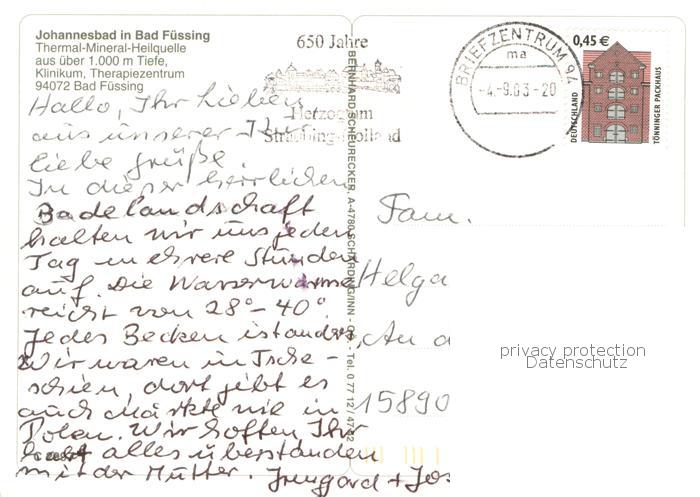 Johannesbad in Bad Füssing
Thermal-Mineral-Heilquelle
aus über 1.000 m Tiefe,
Klinikum, Therapiezentrum
94072 Bad Füssing
Hallo, Ihr Lieben
aus unserer
liebe Grüße.
In dieser herrlichen
Badelandschaft
halten wir uns jeden
Tag mehrere Stunden
auf. Die Wasserwärme
reicht von 28°-40°.
Jedes Becken ist anders.
Wir waren in Tsche-
chien, dort gibt es
auch Märkte wie in
Polen. Wir hoffen Ihr
habt alles überstanden
mit der Mutter. Irmgard + Jos
650 Jahre
Herzogtum
Straubing-Holland
BERNHARD SCHEURECKER, A-4780 SCHÄRDING/INN - Tel. 07712/4732
BRIEFZENTRUM 94
ma
-4.-9.03-20
0,45 €
DEUTSCHLAND
TÖNNINGER PACKHAUS
Fam.
Helga
An d
15890
privacy protection
Datenschutz